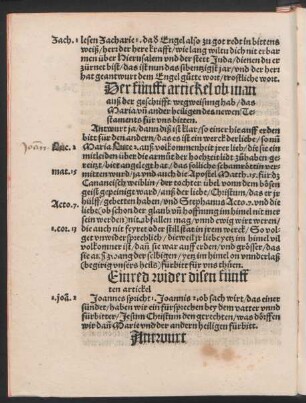 Zach. 1 lesen Zacharie 1. das d Engel also zu got redt in bittens
weiß / her der here krafft / wie lang wiltu dich nit erbar
men über Hierusalem vnd der stett Juda / dienen du er
zürnet bist / das ist nun das sibenzigist jar / vnd der herr
hat geantwurt dem Engel gütte wort / trostliche wort.
Der fünfft artickel ob man
auß der geschrifft wegweisung hab / das
Maria vñ ander heiligen des newen Te-
staments für vns bitten.
Antwurt ja / dann diß ist klar / so einer bie auff erden
bitt für den andern / das es ist ein werck der liebe / so nũ
Joan. Luc. 2 Maria Luce 2. auß volkommenheit jrer liebe / die sie ein
mitleiden über die armůt der hochzeit leüt zů haben ge
reizt / bitt angelegt hat / das sölliche schamröttin vermitten
mat. 15 wurd / vnd ja auch die Apostel Matth. 15. für dz
Cananeisch weiblin / der tochter übel von dem bösen
geist gepeiniget ward / auß der selbigen liebe / Christum / das er jr
Acto. 7. hülff / gebetten haben / vnd Stephanus Acto. 7. vnd die
liebe / ob schon der glaub vñ hoffnung im himel nit mer
sein werden / nit abfallen mag / vnd ewig wirt weren /
1. cor. 13 die auch nit feyret oder still stat in jrem werck / So vol-
get vnwidersprechlich / dieweil jr liebe yetz im himel vil
volkomner ist / dann sie war auff erden / vnd grösser / das
sie auch
der selbigen / yetz im himel on vnnderlaß
(begirig vnsers heils) fürbitt für vns thüen.
Einred wider disen fünff
ten artickel
1. joã. 2 Joannes spricht 1. Joannis 2. ob sach wirt / das einer
sündet / haben wir ein fürsprechen bey dem vatter vnnd
fürbitter / Jesum Christum den gerechten / was dörffen
wir dañ Marie vnd der andern heiligen fürbitt.
Antwurt